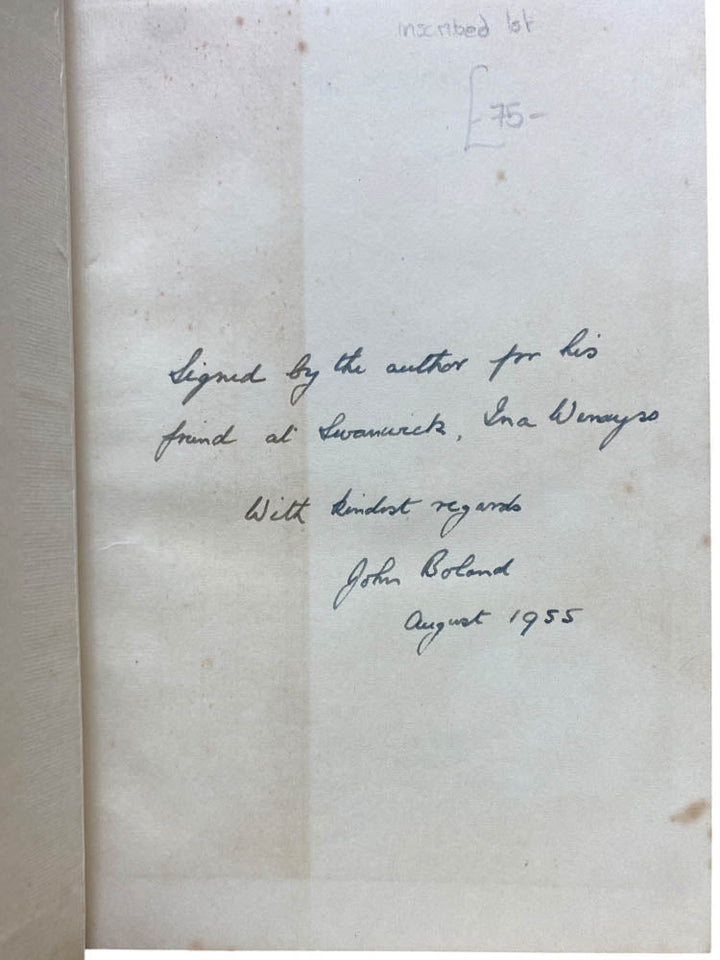 inscribed 1st
£75-
Signed by the author for his
friend at Swanwick, Ina
With kindest regards
John Boland
August 1955